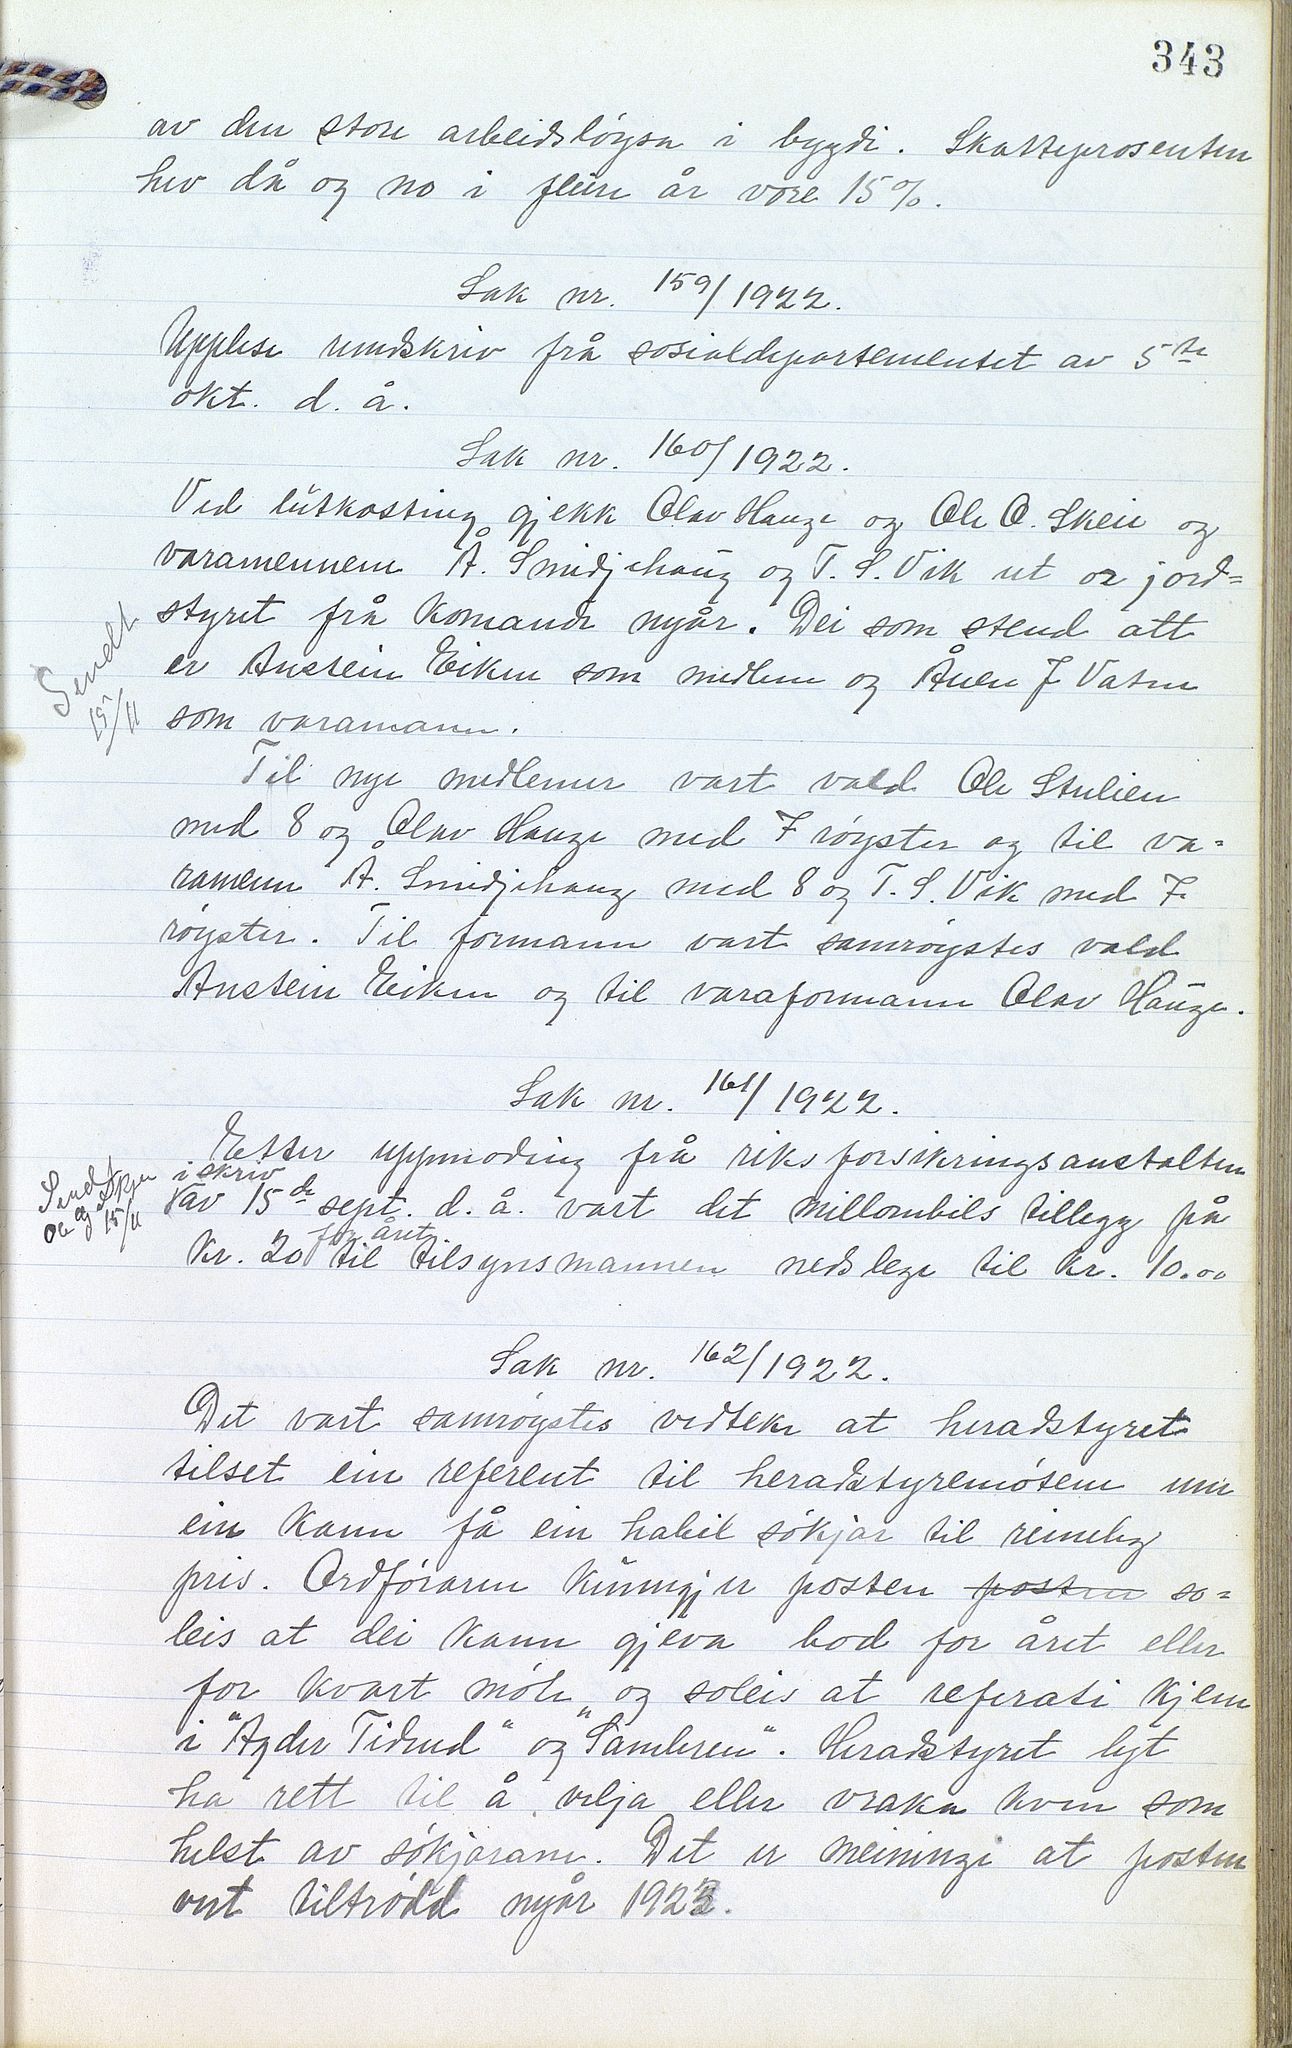 343
av den store arbeidsløysa i bygdi. Skatteprosenten
hev då og no i fleire år vore 15%.
Sak nr. 159/1922.
Upplese rundskriv frå sosialdepartementet av 5te
okt. d. å.
Sak nr. 160/1922.
Ved lutkasting gjekk Olav Hauge og Ole O. Skeie og
varamennene Å. Smidjehaug og T. S. Vik ut or jord=
styret frå komande nyår. Dei som stend att
er Anstein Eiken som medlem og Ånen J Vatne
som varamann.
Sendt
15/11
Til nye medlemer vart vald Ole Stulien
med 8 og Olav Hauge med 7 røyster og til va=
ramenn Å. Smidjehaug med 8 og T. S. Vik med 7
røyster. Til formann vart samrøystes vald
Anstein Eiken og til varaformann Olav Hauge.
Sak nr. 161/1922.
Etter uppmoding frå riksforsikringsanstalten
i skriv
av 15de sept. d. å. vart det millombils tillegg på
for året
kr. 20 til tilsynsmannen nedslege til kr. 10.00
Sendt
15/11
Sak nr. 162/1922.
Det vart samrøystes vedteke at heradstyret
tilset ein referent til heradstyremøtene um
ein kann få ein habil søkjar til rimeleg
pris. Ordføraren kunngjer posten posten so=
leis at dei kann gjeva bod for året eller
for kvart møte, og soleis at referati kjem
i "Agder Tidend" og "Samleren". Heradstyret lyt
ha rett til å velja eller vraka kven som
helst av søkjarane. Det er meiningi at posten
vert tiltrødd nyår 1923.